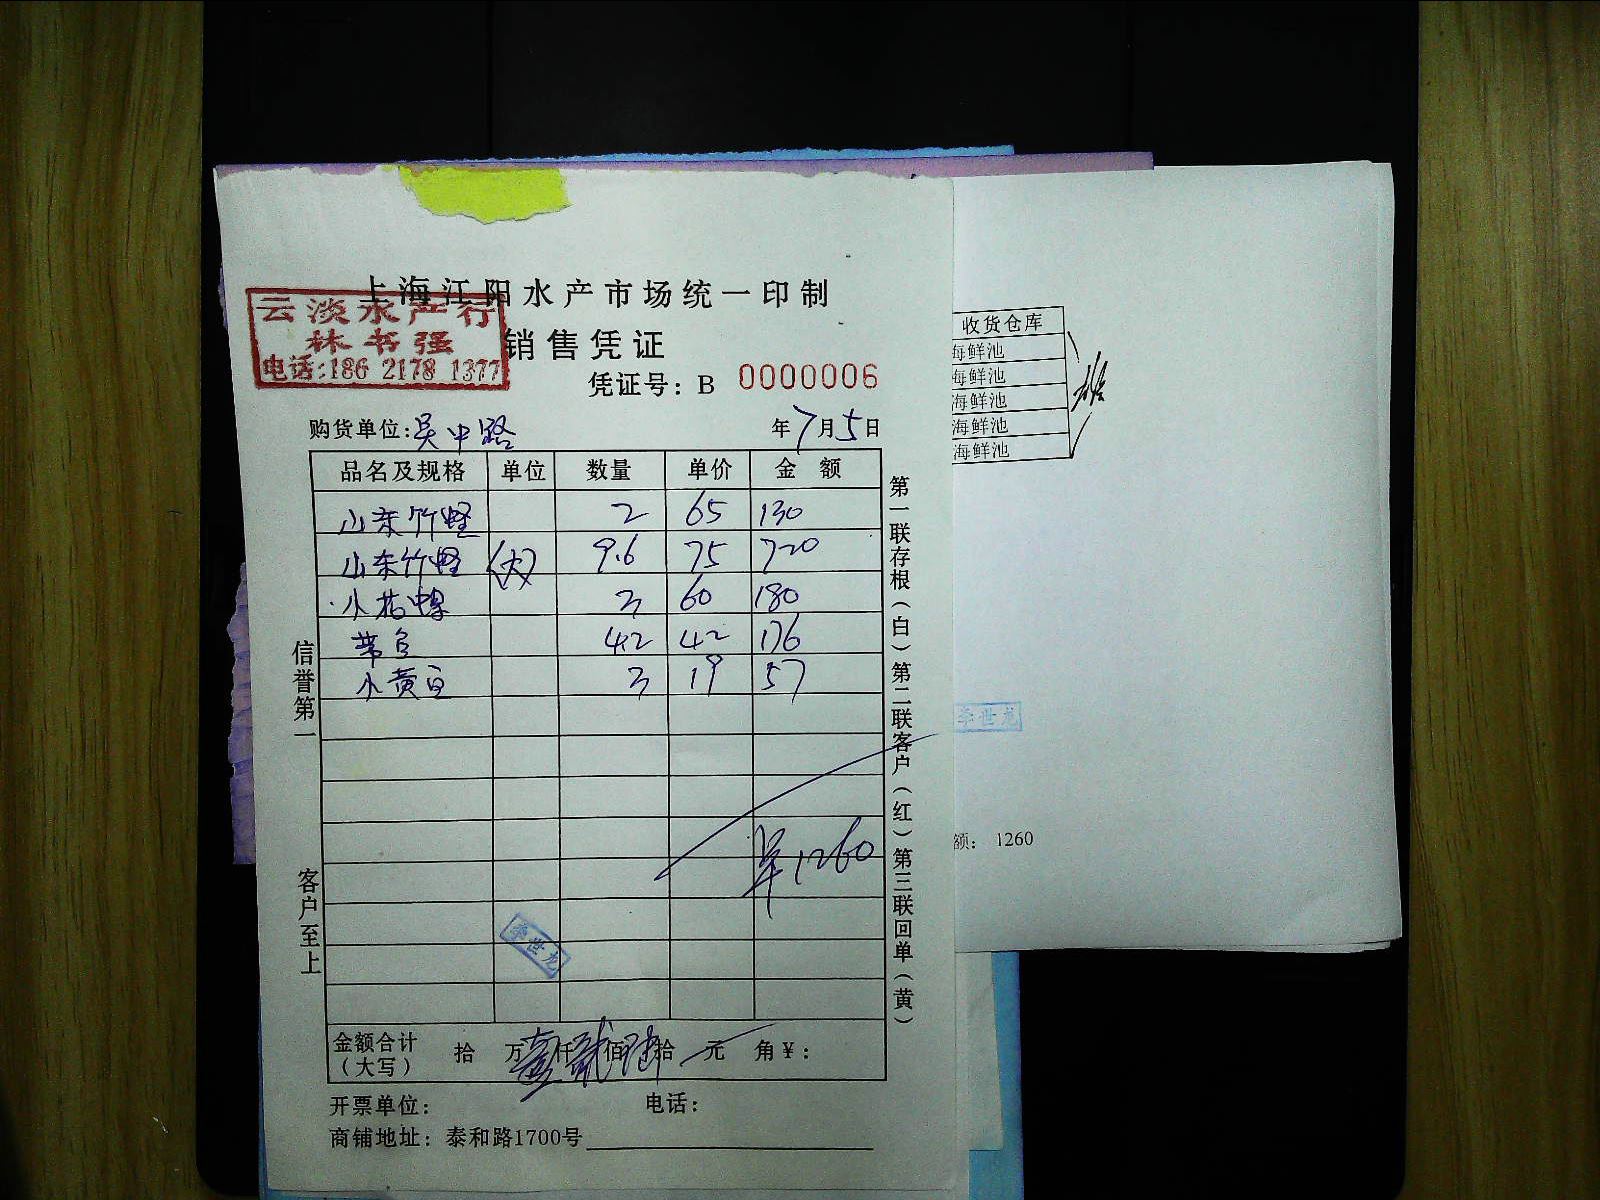 上海江阳水产市场统一印制
云淡水产行
林书强
电话:186 2178 1377
销售凭证
凭证号: B 0000006
购货单位:吴中路 年7月5日
品名及规格 单位 数量 单价 金额
山东竹蛏 2 65 130
山东竹蛏 (大) 9.6 75 720
小 3 60 180
带鱼 4.2 42 176
小黄鱼 3 19 57
¥1260
李世龙
金额合计(大写) 拾 万壹仟贰佰陆拾 元 角¥:
开票单位: 电话:
商铺地址: 泰和路1700号
信誉第一 客户至上
第一联存根(白)第二联客户(红)第三联回单(黄)
收货仓库
海鲜池
海鲜池
海鲜池
海鲜池
海鲜池
李世龙
额: 1260